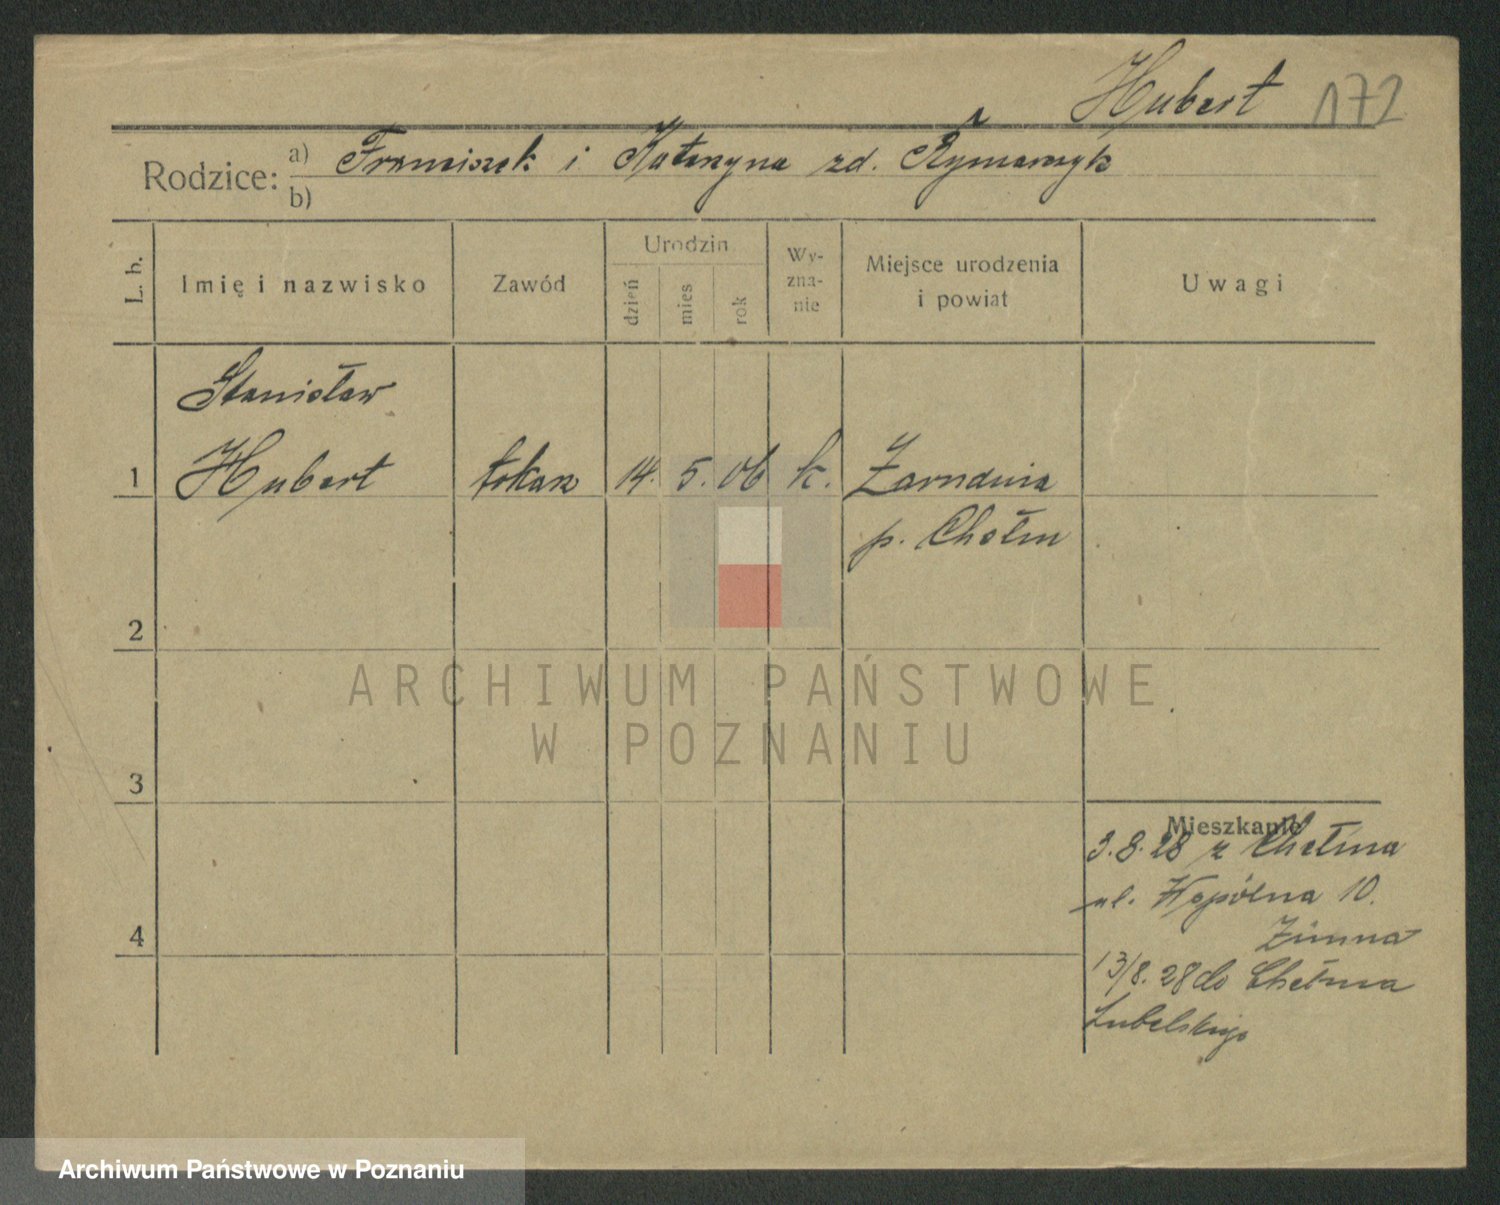 Hubert 172
Rodzice: a) Franciszek i Katarzyna zd. Rymarczyk
b)
L. b.
Imię i nazwisko
Zawód
Urodzin
dzień
mies
rok
Wy-
zna-
nie
Miejsce urodzenia
i powiat
Uwagi
Stanisław
1 Hubert tokarz 14. 5. 06 k. Żarudnia
p. Chełm
2
ARCHIWUM PAŃSTWOWE
W POZNANIU
3
Mieszkanie
3.8.28 z Chełma
ul. Wspólna 10.
4
Zimna
13/8.28 do Chełma
Lubelskiego
Archiwum Państwowe w Poznaniu